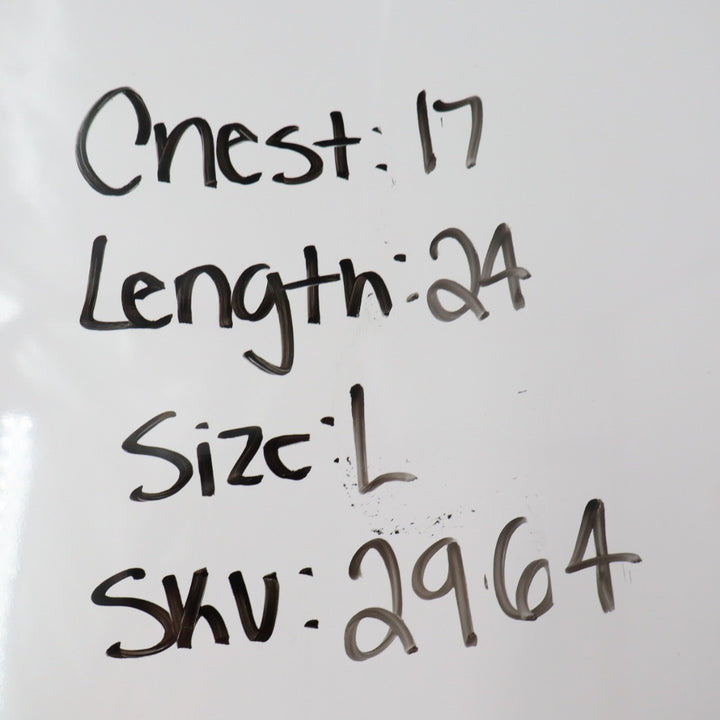 Chest: 17
Length: 24
Size: L
SKU: 2964